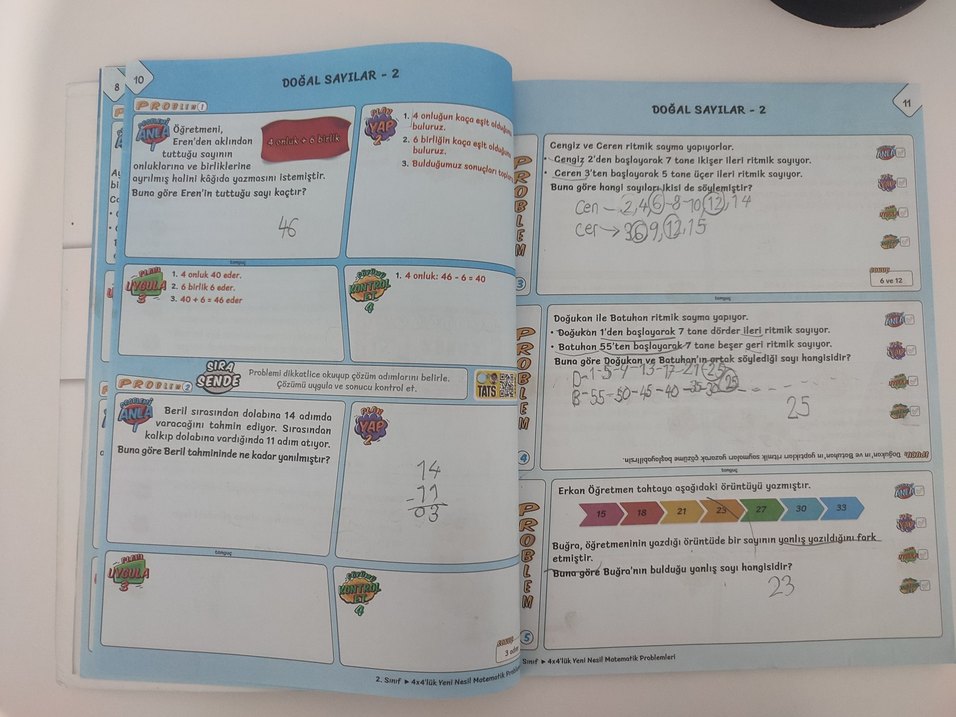 8
10
DOĞAL SAYILAR - 2
PROBLEM 1
PROBLEMİ
ANLA
1
Öğretmeni,
Eren'den aklından
tuttuğu sayının
onluklarına ve birliklerine
ayrılmış halini kâğıda yazmasını istemiştir.
Buna göre Eren'in tuttuğu sayı kaçtır?
4 onluk + 6 birlik
46
PLAN
YAP
2
1. 4 onluğun kaça eşit olduğunu
buluruz.
2. 6 birliğin kaça eşit olduğunu
buluruz.
3. Bulduğumuz sonuçları
tonguç
PLANI
UYGULA
3
1. 4 onluk 40 eder.
2. 6 birlik 6 eder.
3. 40 + 6 = 46 eder
ÇÖZÜMÜ
KONTROL
ET
4
1. 4 onluk: 46 - 6 = 40
SIRA
SENDE
Problemi dikkatlice okuyup çözüm adımlarını belirle.
Çözümü uygula ve sonucu kontrol et.
TATS
PROBLEM 2
PROBLEMİ
ANLA
1
Beril sırasından dolabına 14 adımda
varacağını tahmin ediyor. Sırasından
kalkıp dolabına vardığında 11 adım atıyor.
Buna göre Beril tahmininde ne kadar yanılmıştır?
PLAN
YAP
2
14
- 11
03
tonguç
PLANI
UYGULA
3
ÇÖZÜMÜ
KONTROL
ET
4
SONUÇ
3 adım
2. Sınıf ► 4x4'lük Yeni Nesil Matematik
DOĞAL SAYILAR - 2
11
PROBLEM
3
Cengiz ve Ceren ritmik sayma yapıyorlar.
• Cengiz 2'den başlayarak 7 tane ikişer ileri ritmik sayıyor.
• Ceren 3'ten başlayarak 5 tane üçer ileri ritmik sayıyor.
Buna göre hangi sayıları ikisi de söylemiştir?
Cen → 2,4,6-8-10,12,14
Cer → 3 6 9,12,15
SONUÇ
6 ve 12
tonguç
PROBLEM
4
Doğukan ile Batuhan ritmik sayma yapıyor.
• Doğukan 1'den başlayarak 7 tane dörder ileri ritmik sayıyor.
• Batuhan 55'ten başlayarak 7 tane beşer geri ritmik sayıyor.
Buna göre Doğukan ve Batuhan'ın ortak söylediği sayı hangisidir?
D-1-5-9-13-17-21-25
B-55-50-45-40-35-30-25
25
İPUCU: Doğukan'ın ve Batuhan'ın yaptıkları ritmik saymaları yazarak çözüme başlayabilirsin.
tonguç
PROBLEM
5
Erkan Öğretmen tahtaya aşağıdaki örüntüyü yazmıştır.
15 18 21 23 27 30 33
Buğra, öğretmeninin yazdığı örüntüde bir sayının yanlış yazıldığını fark
etmiştir.
Buna göre Buğra'nın bulduğu yanlış sayı hangisidir?
23
Sınıf ► 4x4'lük Yeni Nesil Matematik Problemleri